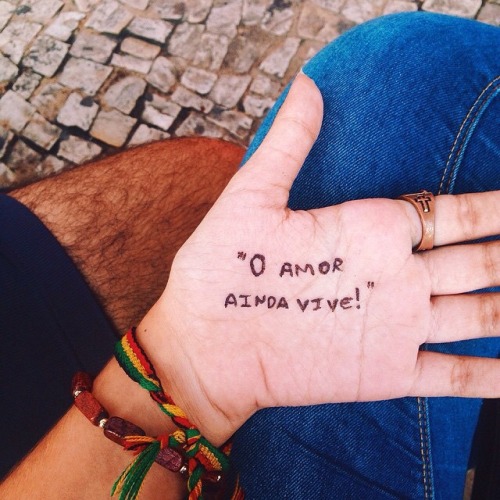 "O AMOR
AINDA VIVE!"